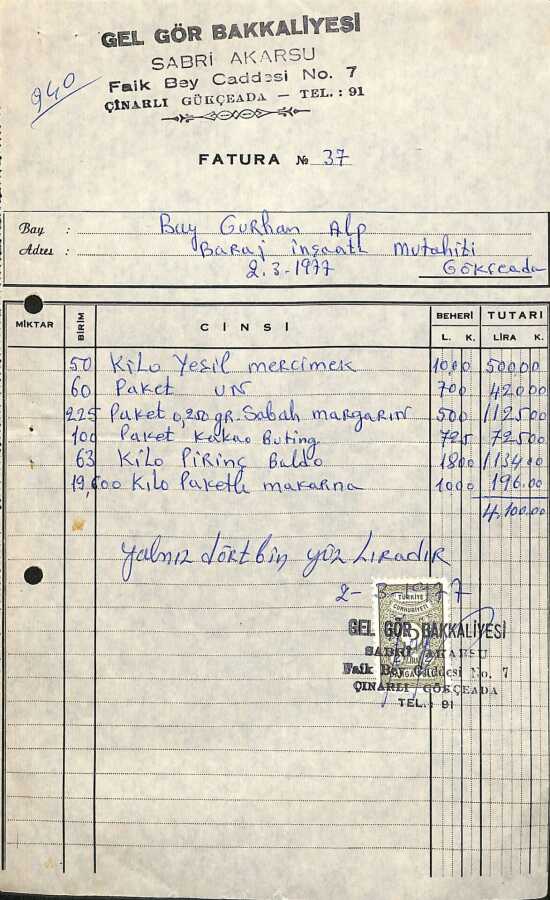 GEL GÖR BAKKALİYESİ
SABRİ AKARSU
Faik Bey Caddesi No. 7
ÇİNARLI GÖKÇEADA — TEL. : 91
940
FATURA № 37
Bay : Bay Gurhan Alp
Adres : Baraj inşaatı mutahiti
2.3-1977 Gökceada
MİKTAR BİRİM CİNSİ BEHERİ TUTARI
L. K. LİRA K.
50 Kilo Yeşil mercimek 1000 50000
60 Paket UN 700 42000
225 Paket 0,250 gr. Sabah margarin 500 112500
100 Paket Kakao Buting 725 72500
63 Kilo Pirinç Baldo 1800 113400
19,600 Kilo Paketli makarna 1000 196.00
4,100.00
Yalnız dörtbin yüz Liradır
2- 3- 1977
TÜRKİYE
CUMHURİYETİ
GEL GÖR BAKKALİYESİ
SABRİ AKARSU
Faik Bey Caddesi No. 7
ÇINARLI GÖKÇEADA
TEL. : 91